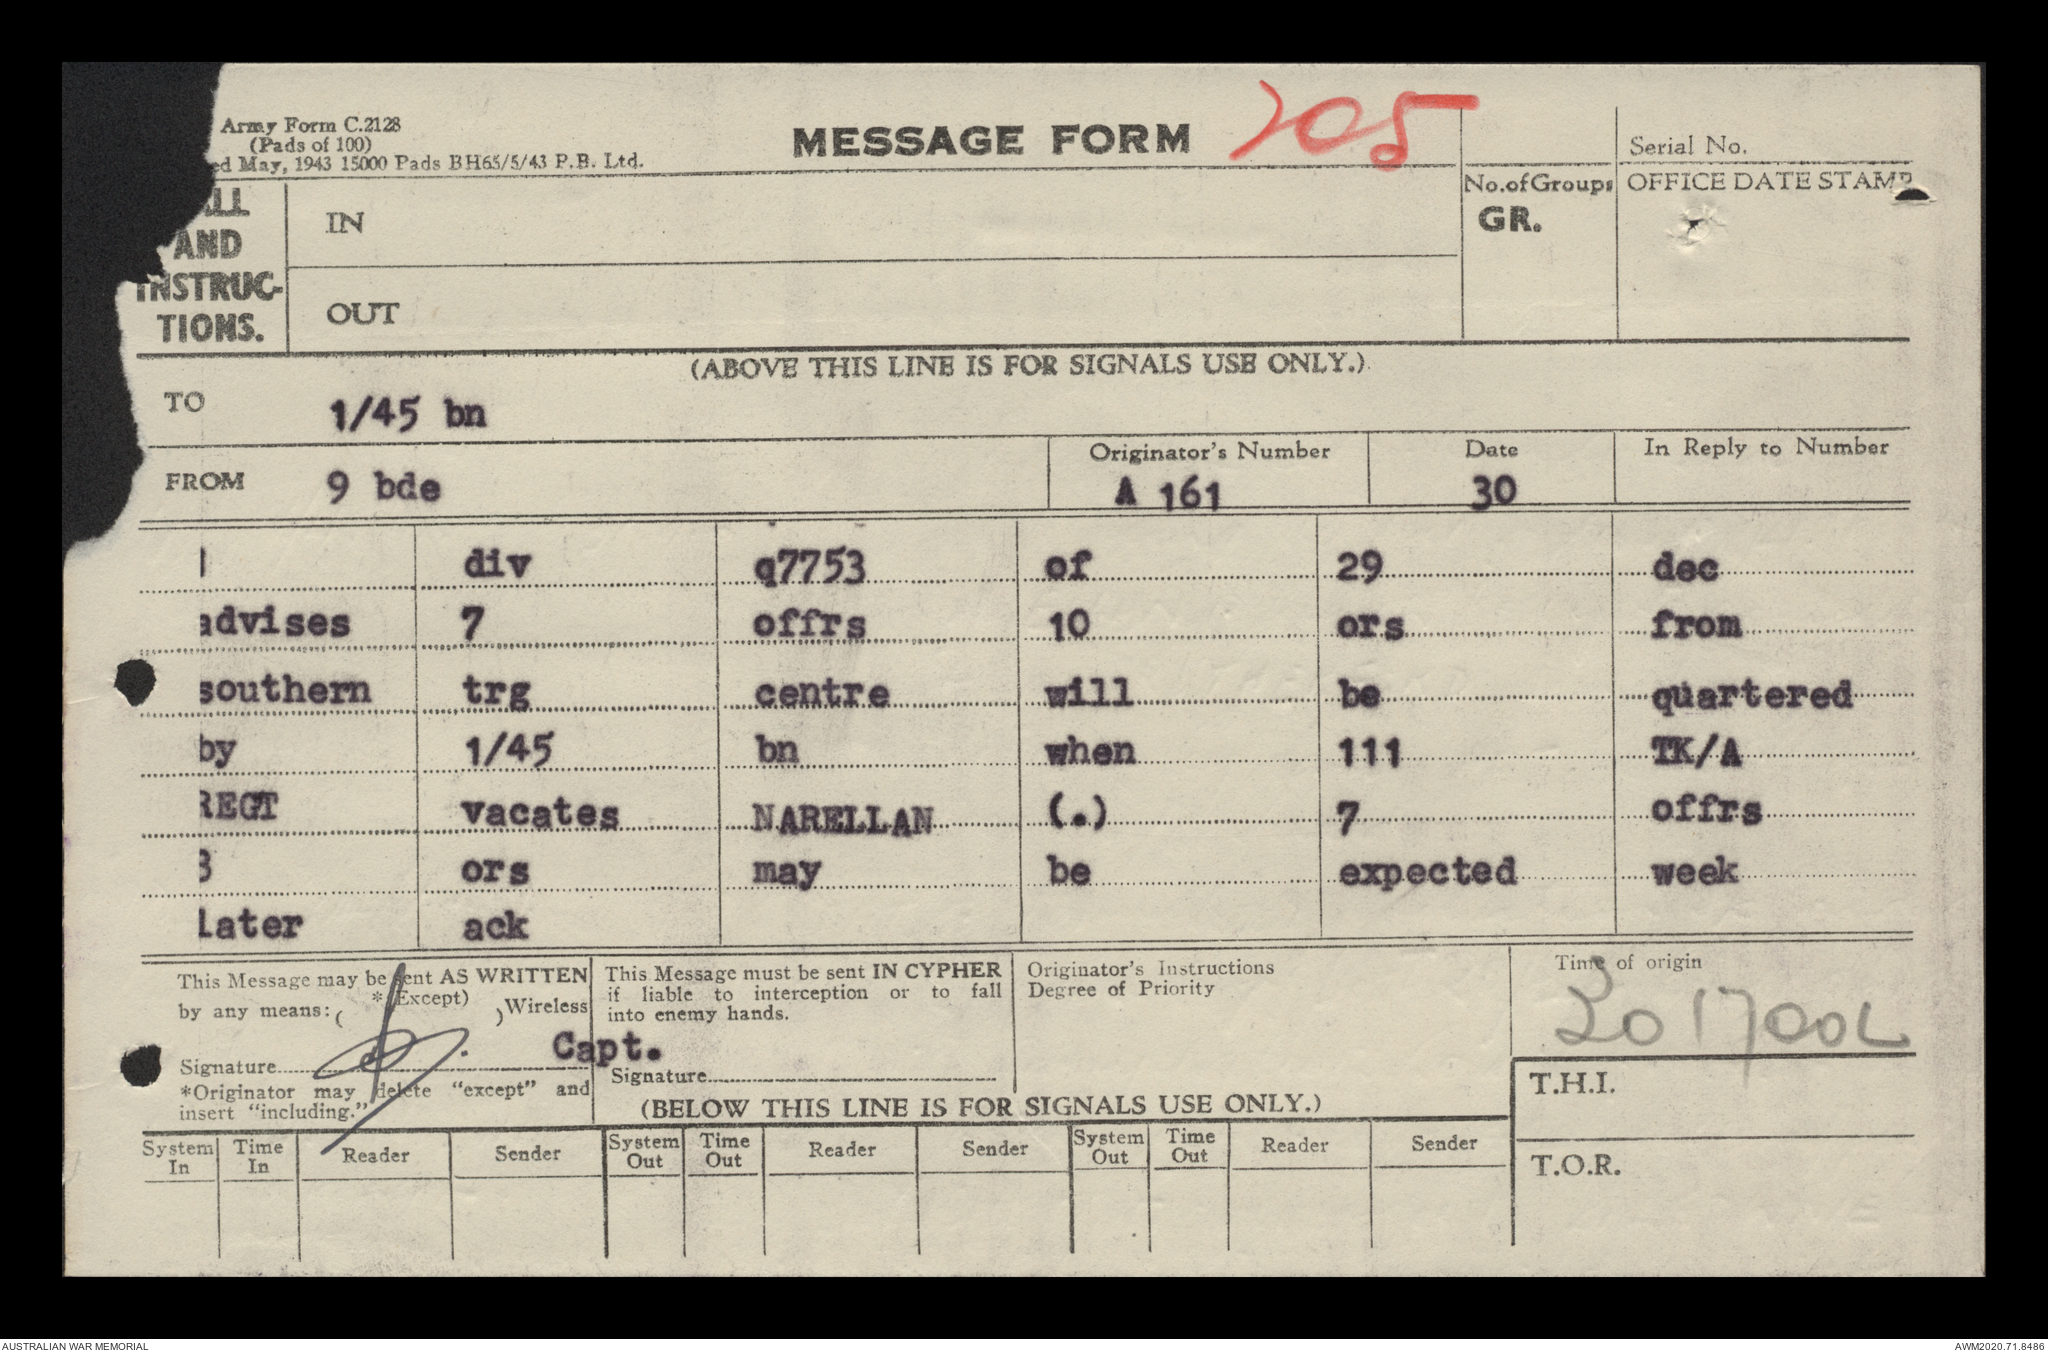 Army Form C.2128
(Pads of 100)
ed May, 1943 15000 Pads BH65/5/43 P.B. Ltd.
MESSAGE FORM
205
Serial No.
No. of Groups
GR.
OFFICE DATE STAMP
ALL
AND
INSTRUC-
TIONS.
IN
OUT
(ABOVE THIS LINE IS FOR SIGNALS USE ONLY.)
TO 1/45 bn
FROM 9 bde
Originator's Number
A 161
Date
30
In Reply to Number
div q7753 of 29 dec
advises 7 offrs 10 ors from
southern trg centre will be quartered
by 1/45 bn when 111 TK/A
REGT vacates NARELLAN (.) 7 offrs
ors may be expected week
later ack
This Message may be sent AS WRITTEN
by any means: ( * (Except) ) Wireless
Signature
Capt.
*Originator may delete "except" and
insert "including."
This Message must be sent IN CYPHER
if liable to interception or to fall
into enemy hands.
Signature
Originator's Instructions
Degree of Priority
Time of origin
301700L
T.H.I.
T.O.R.
(BELOW THIS LINE IS FOR SIGNALS USE ONLY.)
System In Time In Reader Sender System Out Time Out Reader Sender System Out Time Out Reader Sender
AUSTRALIAN WAR MEMORIAL
AWM2020.71.8486